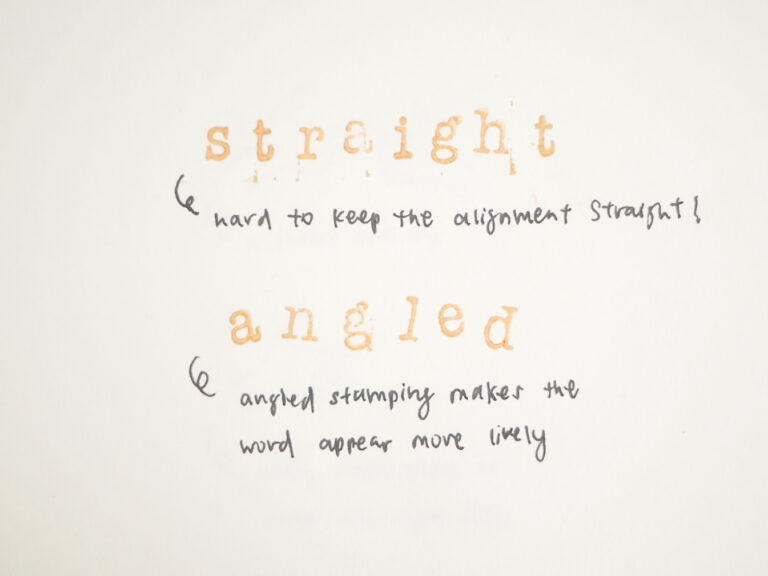 straight
hard to keep the alignment straight!
angled
angled stamping makes the
word appear more likely